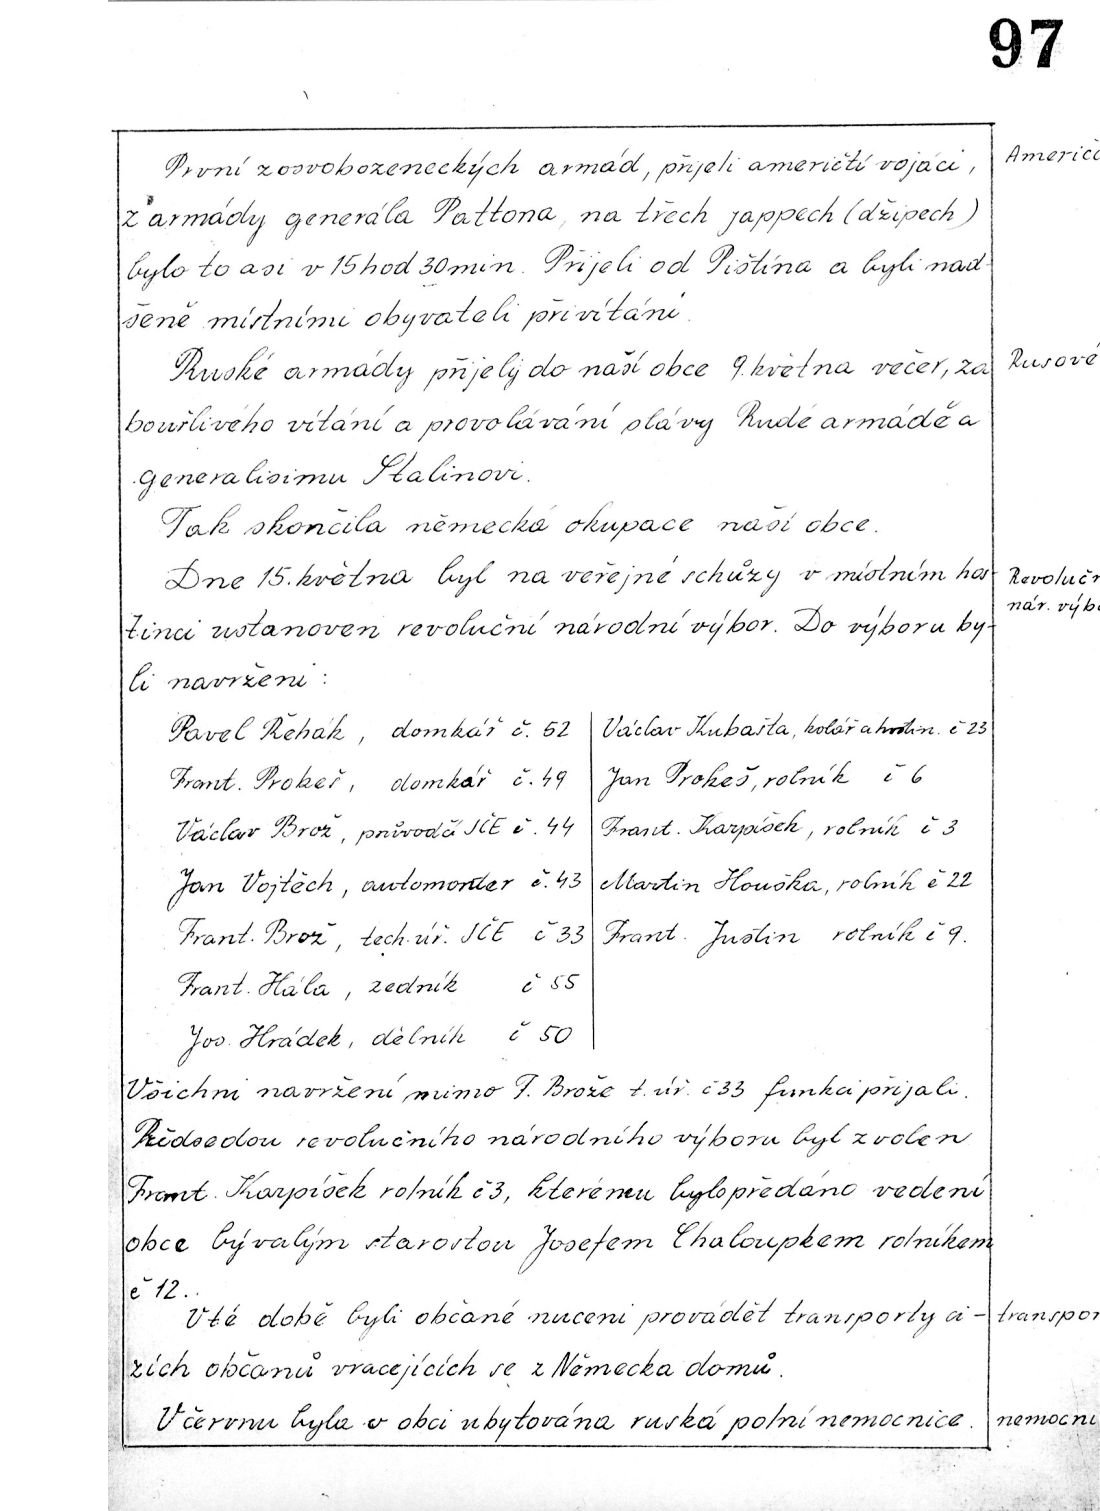 97
První z osvobozeneckých armád, přijeli američtí vojáci,
Americ
z armády generála Pattona, na třech jappech (džípech)
bylo to asi v 15 hod 30 min. Přijeli od Pištína a byli nad-
šeně místními obyvateli přivítáni.
Ruské armády přijely do naší obce 9. května večer, za
Rusové
bouřlivého vítání a provolávání slávy Rudé armádě a
generalisimu Stalinovi.
Tak skončila německá okupace naší obce.
Dne 15. května byl na veřejné schůzy v místním hos-
Revoluč
tinci ustanoven revoluční národní výbor. Do výboru by-
nár. výb
li navrženi:
Pavel Řehák, domkář č. 52 Václav Kubašta, kolář a hostin. č 23
Frant. Prokeš, domkář č. 49 Jan Prokeš, rolník č 6
Václav Brož, průvodčí JČE č. 44 Frant. Karpíšek, rolník č 3
Jan Vojtěch, automonter č. 43 Martin Houška, rolník č 22
Frant. Brož, tech. úř. JČE č 33 Frant. Justin rolník č 9.
Frant. Hála, zedník č 55
Jos. Hrádek, dělník č 50
Všichni navržení mimo F. Brože t. úř. č 33 funkci přijali.
Předsedou revolučního národního výboru byl zvolen
Frant. Karpíšek rolník č 3, kterému bylo předáno vedení
obce bývalým starostou Josefem Chaloupkem rolníkem
č 12..
V té době byli občané nuceni provádět transporty ci-
transpor
zích občanů vracejících se z Německa domů.
V červnu byla v obci ubytována ruská polní nemocnice.
nemocni